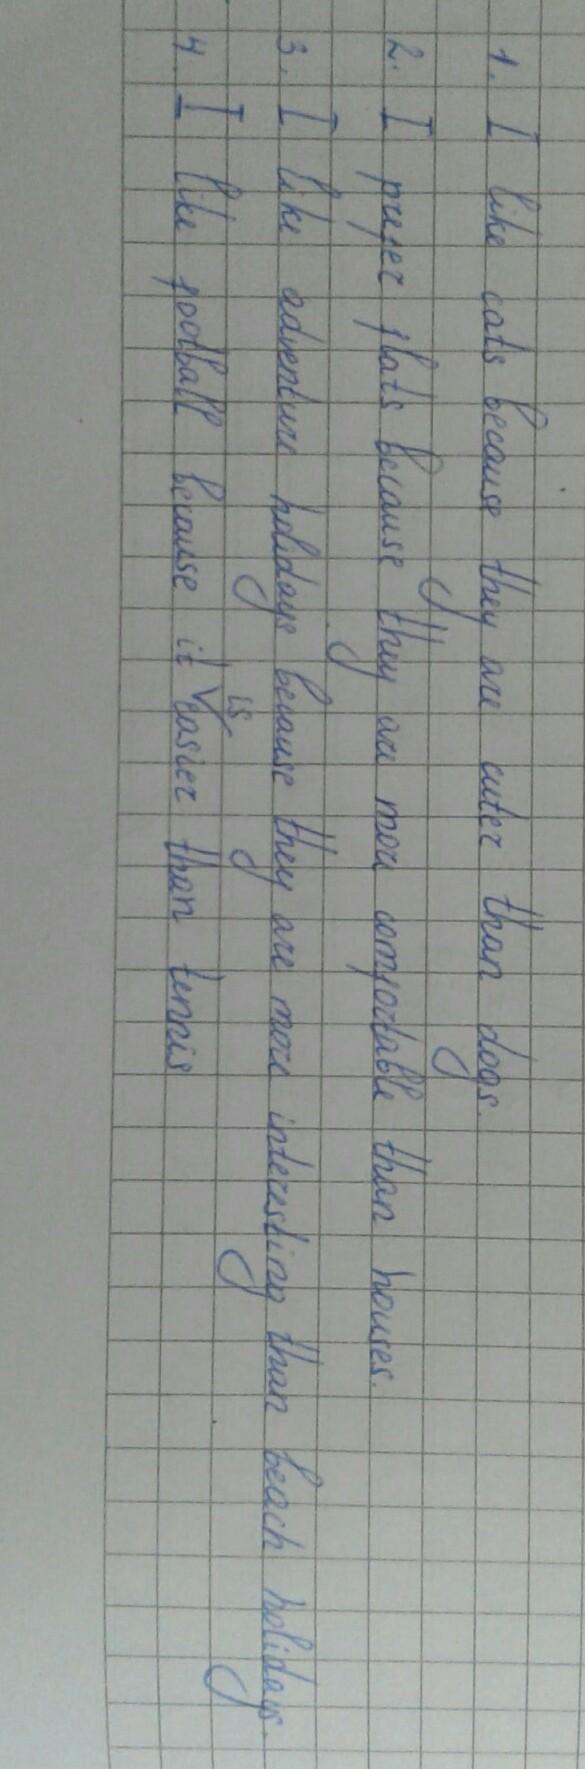 1. I like cats because they are cuter than dogs.
2. I prefer flats because they are more comfortable than houses.
3. I like adventure holidays because they are more interesting than beach holidays.
4. I like football because it is easier than tennis